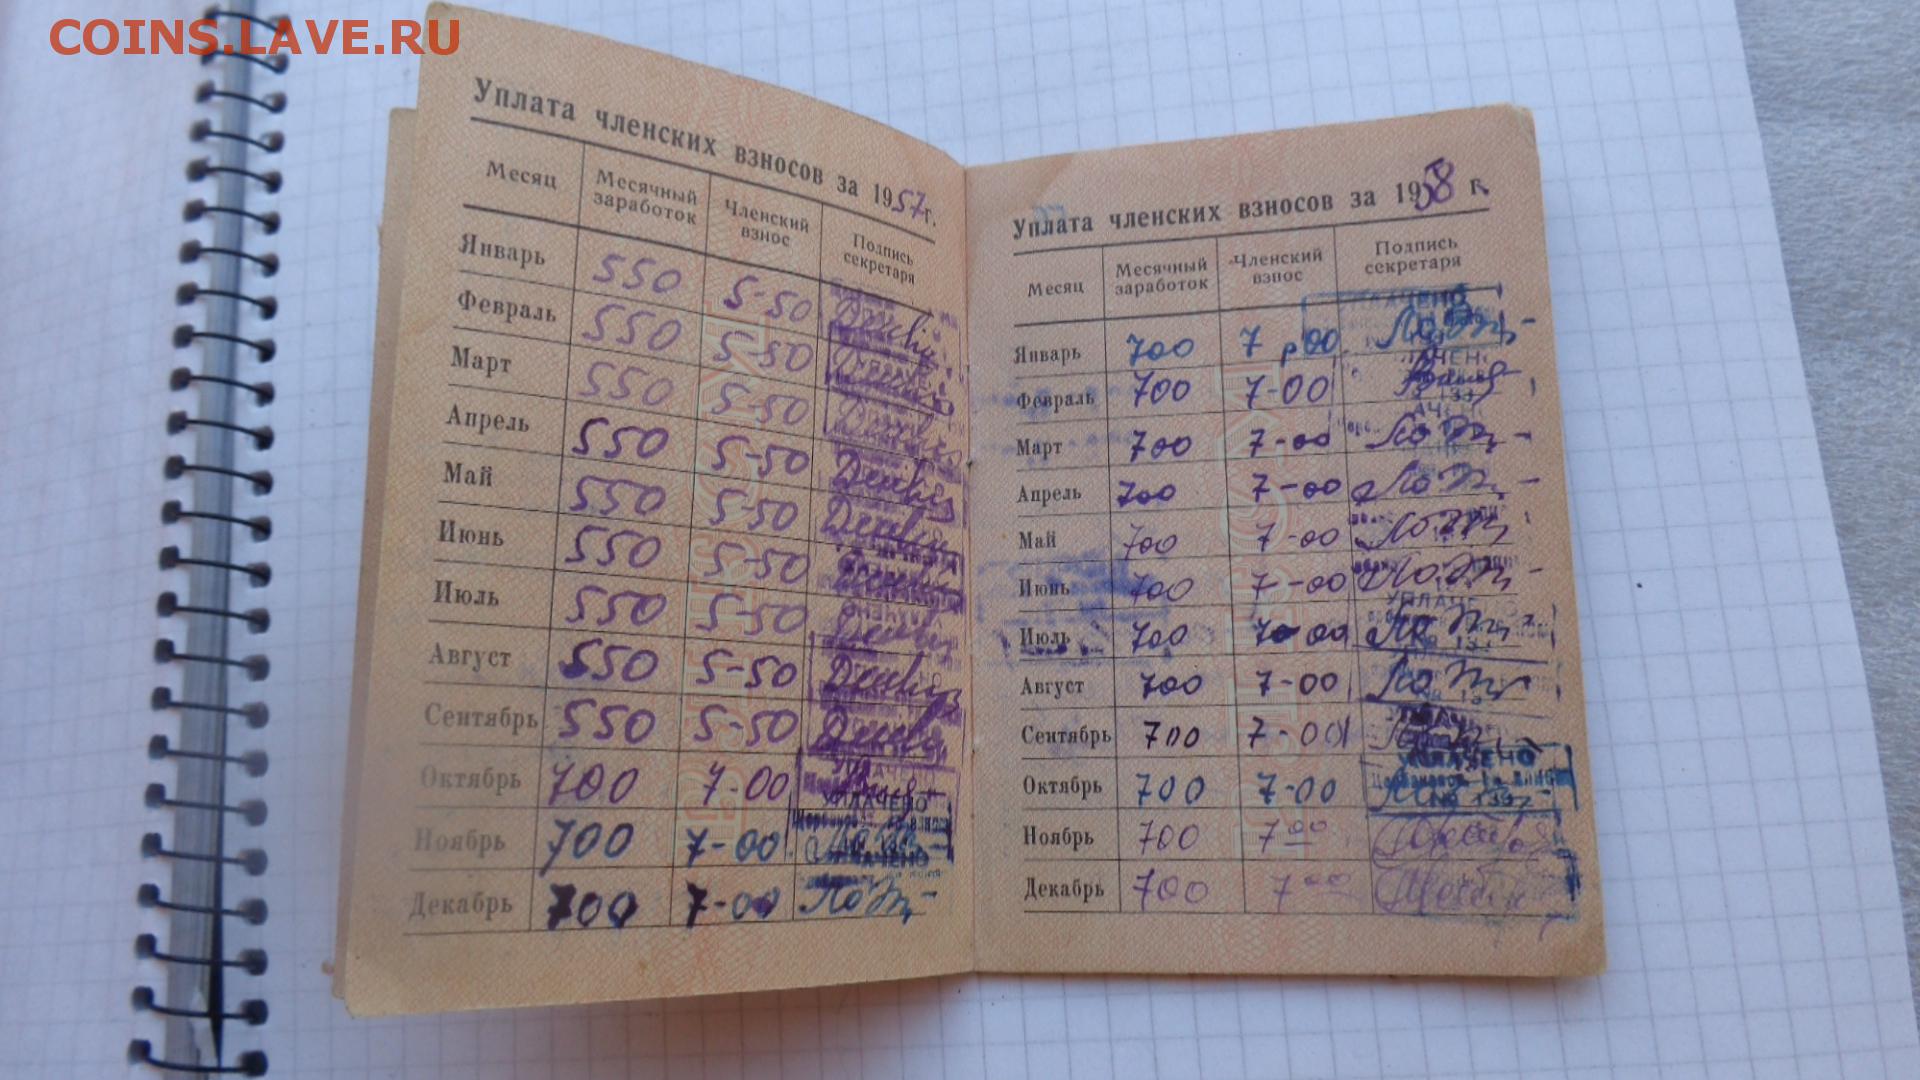 COINS.LAVE.RU
Уплата членских взносов за 1957 г.
Месяц Месячный заработок Членский взнос Подпись секретаря
Январь 550 5-50
Февраль 550 5-50
Март 550 5-50
Апрель 550 5-50
Май 550 5-50
Июнь 550 5-50
Июль 550 5-50
Август 550 5-50
Сентябрь 550 5-50
Октябрь 700 7-00
УПЛАЧЕНО
Ноябрь 700 7-00
УПЛАЧЕНО
Декабрь 700 7-00
Уплата членских взносов за 1958 г.
Месяц Месячный заработок Членский взнос Подпись секретаря
Январь 700 7 р 00
Февраль 700 7-00
Март 700 7-00
Апрель 700 7-00
Май 700 7-00
Июнь 700 7-00
Июль 700 7-00
Август 700 7-00
Сентябрь 700 7-00
УПЛАЧЕНО
Октябрь 700 7-00
Ноябрь 700 7 00
Декабрь 700 7 00